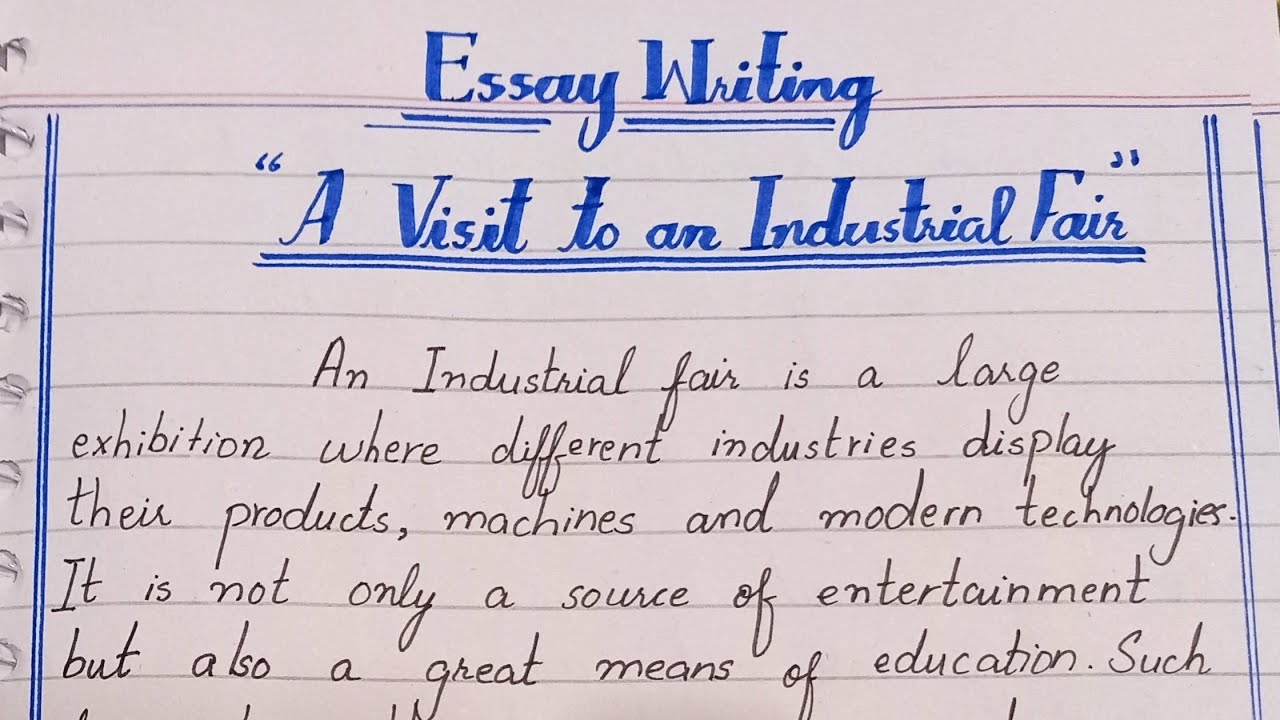 Essay Writing
“A Visit to an Industrial Fair”
An Industrial fair is a large
exhibition where different industries display
their products, machines and modern technologies.
It is not only a source of entertainment
but also a great means of education. Such